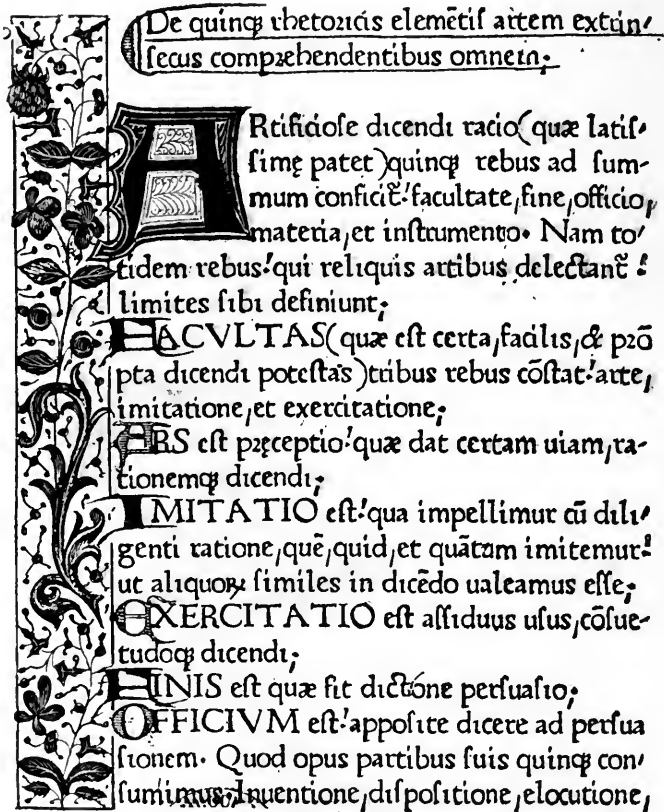 De quinqꝫ rhetoricis elemētiſ artem extrin⸗
ſecus compræhendentibus omnem;
ARtificioſe dicendi racio(quæ latiſ⸗
ſimę patet)quinqꝫ rebus ad ſum-
mum conficit̃:facultate,fine,officio,
materia,et inſtrumento. Nam to⸗
tidem rebus:qui reliquis artibus delectant̃ :
limites ſibi definiunt;
FACVLTAS(quæ eſt certa,facilis,& prō
pta dicendi poteſtas)tribus rebus cōſtat:arte,
imitatione,et exercitatione;
ARS eſt pręceptio:quæ dat certam uiam,ra-
tionemqꝫ dicendi;
IMITATIO eſt:qua impellimur cū dili⸗
genti ratione,quē,quid,et quātum imitemur:
ut aliquoꝝ ſimiles in dicēdo ualeamus eſſe;
EXERCITATIO eſt aſſiduus uſus,cōſue-
tudoqꝫ dicendi;
FINIS eſt quæ fit dictóne perſuaſio;
OFFICIVM eſt:appoſite dicere ad perſua
ſionem. Quod opus partibus ſuis quinqꝫ con⸗
ſumimus:Inuentione,diſpoſitione,elocutione,